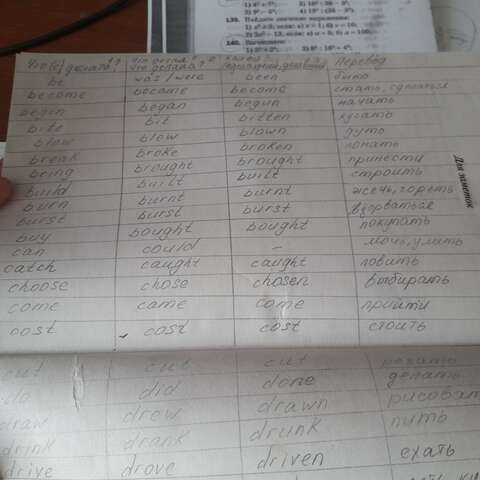 1) 4² + 5²;
2) 9² - 2³;
3) 10² : 20 - 2³;
4) 19² : (36 - 2³).
139. Найдите значение выражения:
140. Вычислите:
Что (с)делать? Что делал? Что делала? Перевод
be was/were been было
become became become стать, сделаться
begin began begun начать
bite bit bitten кусать
blow blow blown дуть
break broke broken ломать
bring brought brought принести
build built built строить
burn burnt burnt жечь, гореть
burst burst burst взорваться
buy bought bought покупать
can could - мочь, уметь
catch caught caught ловить
choose chose chosen выбирать
come came come прийти
cost cost cost стоить
Для заметок
cut cut cut резать
do did done делать
draw drew drawn рисовать
drink drank drunk пить
drive drove driven ехать